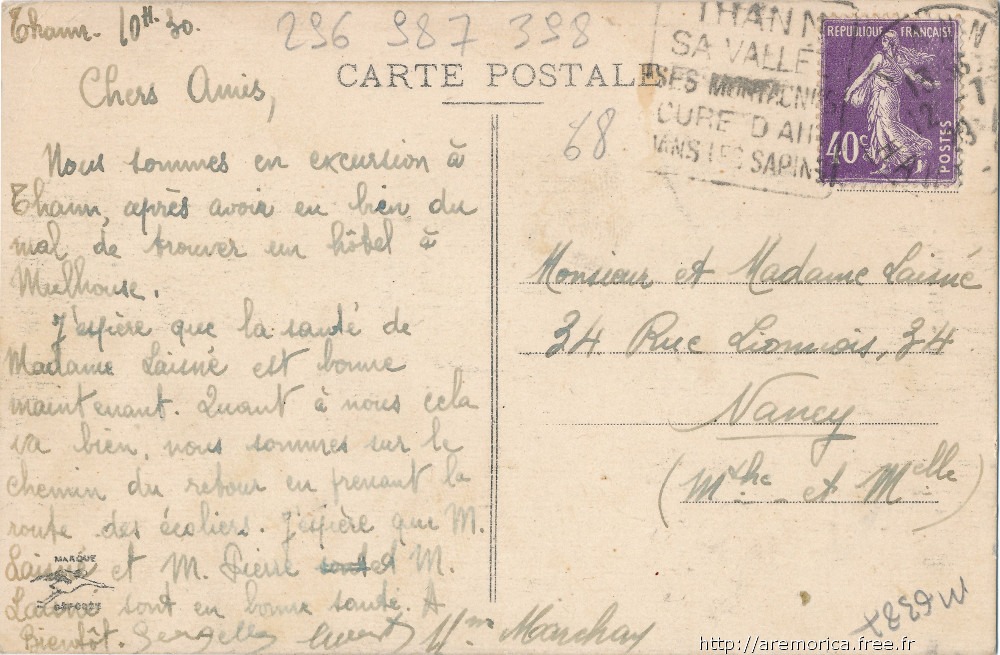 Thann - 10H.30.
296 987 398
CARTE POSTALE
Chers Amis,
68
Nous sommes en excursion à
Thann, après avoir eu bien du
mal de trouver un hôtel à
Mulhouse.
J'espère que la santé de
Madame Laisné est bonne
maintenant. Quant à nous cela
va bien, nous sommes sur le
chemin du retour en prenant la
route des écoliers. J'espère que M.
Laisné et M. Pierre et M.
sont en bonne santé. A
Bientôt.
MARQUE
DÉPOSÉE
THANN
SA VALLÉE
SES MONTAGNES
CURE D'AIR
DANS LES SAPINS
RÉPUBLIQUE FRANÇAISE
40c
POSTES
Monsieur et Madame Laisné
34 Rue Lionnois, 34
Nancy
(Mthe et Mselle)
http://aremorica.free.fr